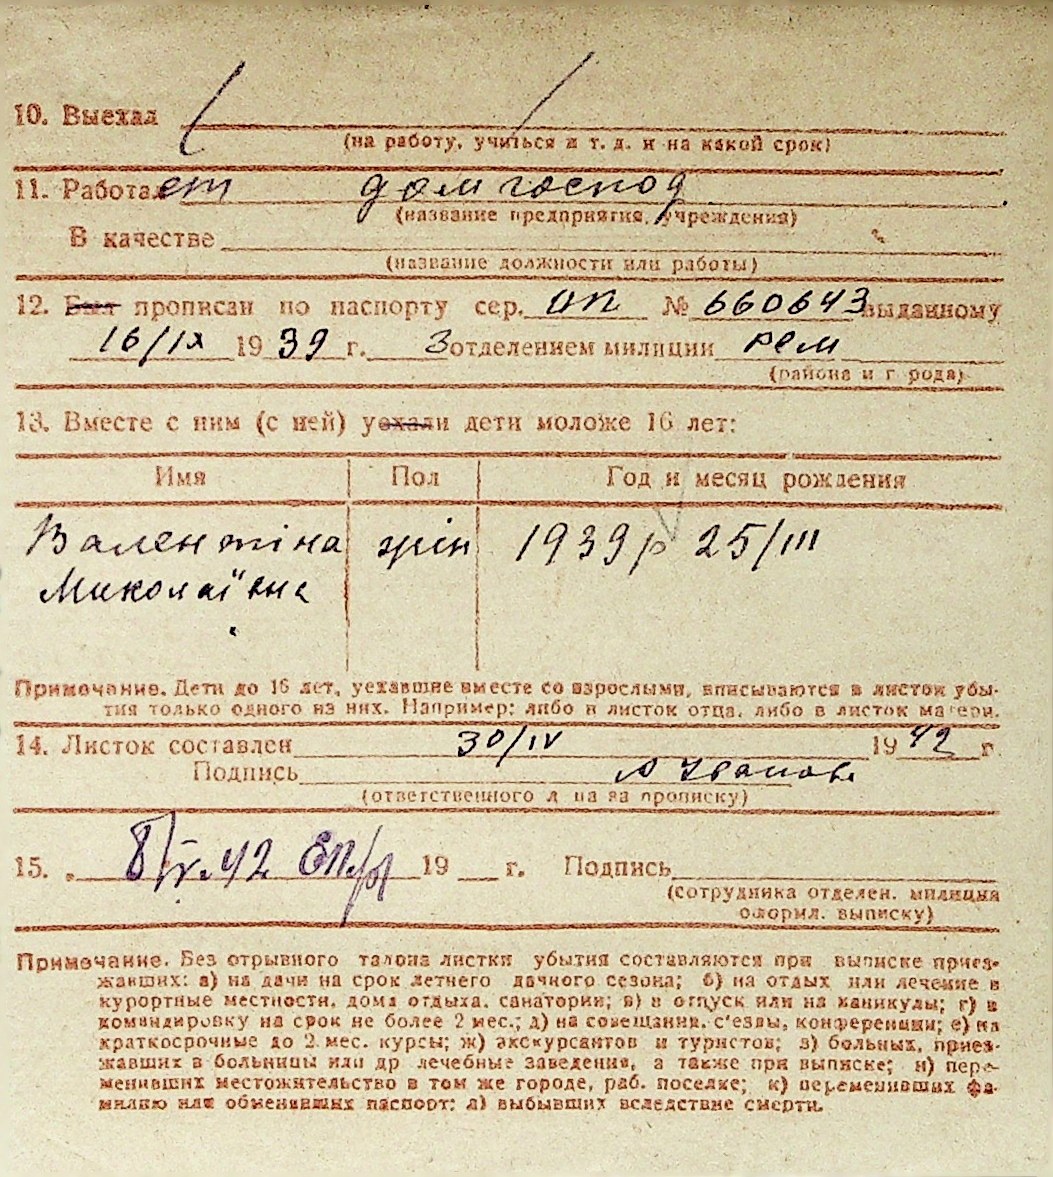 10. Выехал
(на работу, учиться и т. д. и на какой срок)
11. Работает домгоспод
(название предприятия, учреждения)
В качестве
(название должности или работы)
12. Был прописан по паспорту сер. ИП № 660643 выданному
16/IX 1939 г. 3 отделением милиции рем
(района и города)
13. Вместе с ним (с ней) уехали дети моложе 16 лет:
Имя Пол Год и месяц рождения
Валентіна жін 1939 р 25/III
Миколаївна
Примечание. Дети до 16 лет, уехавшие вместе со взрослыми, вписываются в листок убы-
тия только одного из них. Например: либо в листок отца, либо в листок матери.
14. Листок составлен 30/IV 1942 г.
Подпись
(ответственного лица за прописку)
15. 8/V.42 19 г. Подпись
(сотрудника отделен. милиции
оформл. выписку)
Примечание. Без отрывного талона листки убытия составляются при выписке приез-
жавших: а) на дачи на срок летнего дачного сезона; б) на отдых или лечение в
курортные местности, дома отдыха, санатории; в) в отпуск или на каникулы; г) в
командировку на срок не более 2 мес.; д) на совещания, с'езды, конференции; е) на
краткосрочные до 2 мес. курсы; ж) экскурсантов и туристов; з) больных, приез-
жавших в больницы или др лечебные заведения, а также при выписке; и) пере-
менивших местожительство в том же городе, раб. поселке; к) переменивших фа-
милию или обменявших паспорт; л) выбывших вследствие смерти.